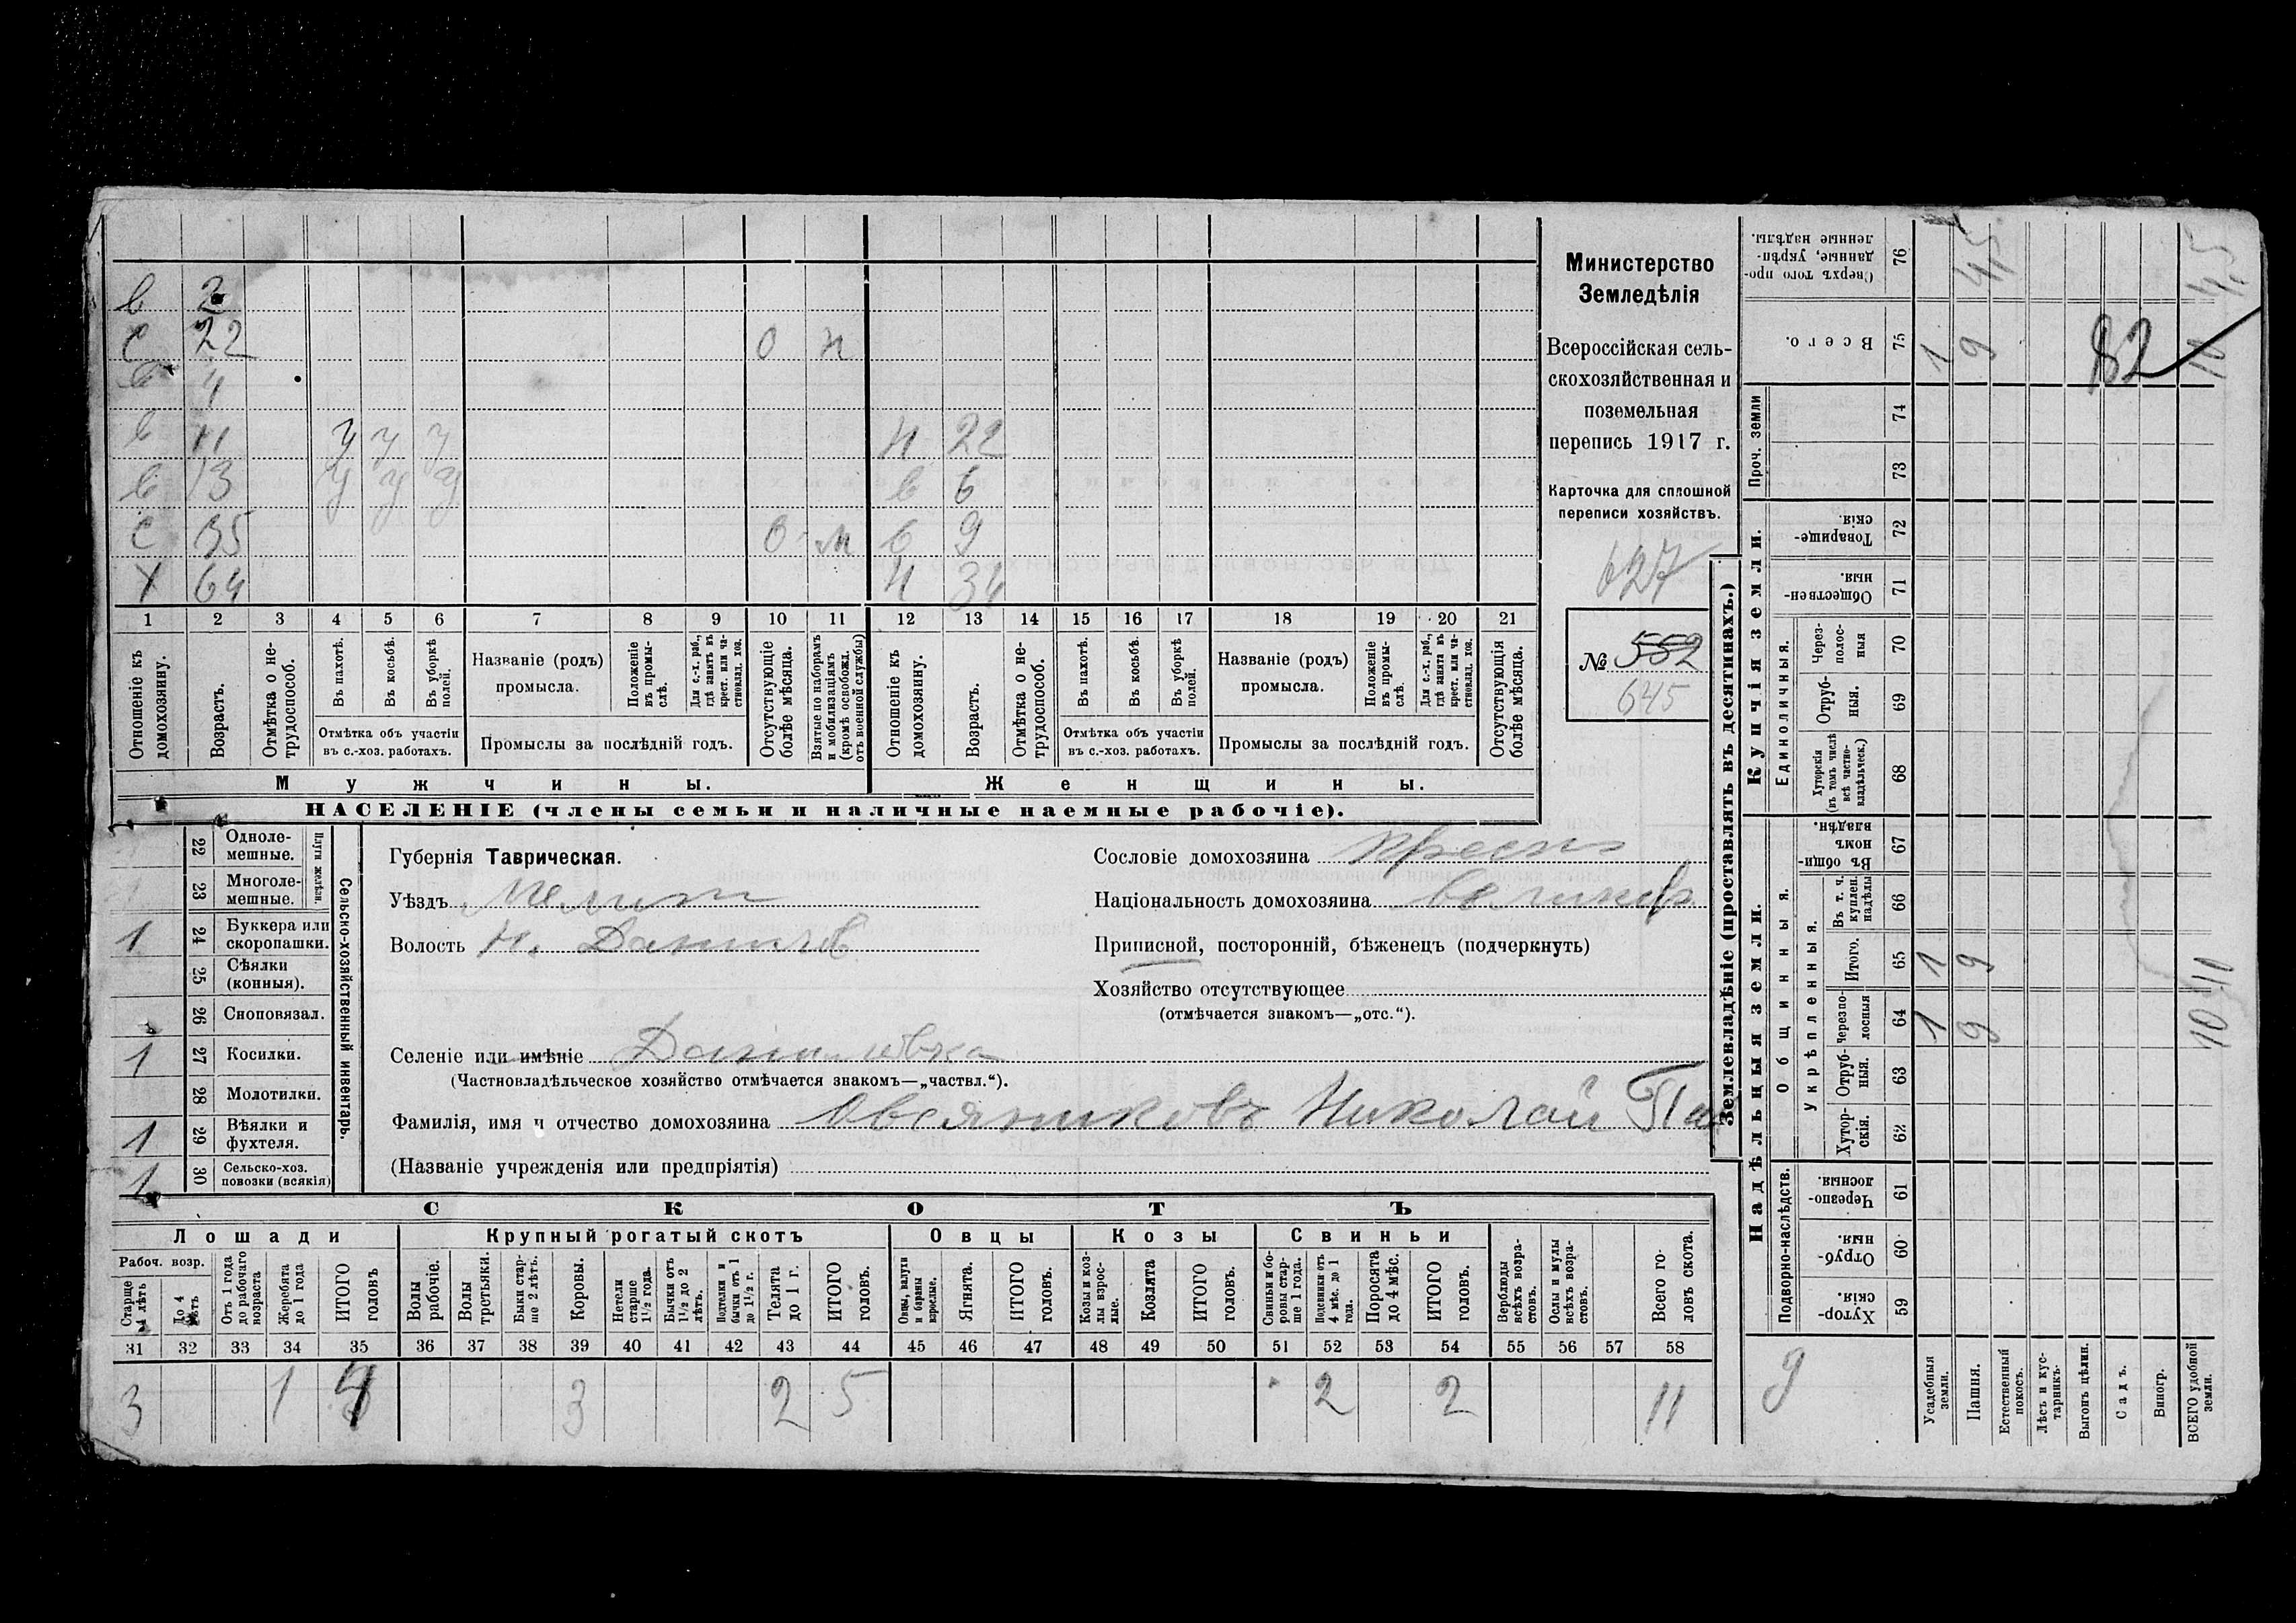 в 2
с 22 о н
4
в 11 у у у н 22
в 13 у у у в 6
с 35 о м в 9
х 64 н 34
1 2 3 4 5 6 7 8 9 10 11 12 13 14 15 16 17 18 19 20 21
Отношеніе къ домохозяину.
Возрастъ.
Отмѣтка о не-трудоспособ.
Въ пахотѣ.
Въ косьбѣ.
Въ уборкѣ полей.
Отмѣтка объ участіи
въ с.-хоз. работахъ.
Названіе (родъ)
промысла.
Положеніе въ промы-слѣ.
Для с.-х. раб., гдѣ занятъ въ крест. или ча-стновлад. хоз.
Промыслы за послѣдній годъ.
Отсутствующіе болѣе мѣсяца.
Взятые по наборамъ и мобилизаціямъ (кромѣ освобожд. отъ военной службы)
Отношеніе къ домохозяину.
Возрастъ.
Отмѣтка о не-трудоспособ.
Въ пахотѣ.
Въ косьбѣ.
Въ уборкѣ полей.
Отмѣтка объ участіи
въ с.-хоз. работахъ.
Названіе (родъ)
промысла.
Положеніе въ промы-слѣ.
Для с.-х. раб., гдѣ занята въ крест. или ча-стновлад. хоз.
Промыслы за послѣдній годъ.
Отсутствующія болѣе мѣсяца.
Мужчины.
Женщины.
НАСЕЛЕНІЕ (члены семьи и наличные наемные рабочіе).
Министерство
Земледѣлія
Всероссійская сель-
скохозяйственная и
поземельная
перепись 1917 г.
Карточка для сплошной
переписи хозяйствъ.
627
№ 552
645
Сельско-хозяйственный инвентарь.
Плуги желѣзн.
22 Одноле-мешные.
23 Многоле-мешные.
1 24 Буккера или скоропашки.
25 Сѣялки (конныя).
26 Сноповязал.
1 27 Косилки.
28 Молотилки.
1 29 Вѣялки и фухтеля.
1 30 Сельско-хоз. повозки (всякія)
Губернія Таврическая.
Уѣздъ Мелит
Волость Н. Данилов
Селеніе или имѣніе Даниловка
(Частновладѣльческое хозяйство отмѣчается знакомъ—„частвл.“).
Фамилія, имя и отчество домохозяина Овсянниковъ Николай
(Названіе учрежденія или предпріятія)
Сословіе домохозяина Крест
Національность домохозяина великор
Приписной, посторонній, бѣженецъ (подчеркнуть)
Хозяйство отсутствующее
(отмѣчается знакомъ—„отс.“).
СКОТЪ
Лошади
Крупный рогатый скотъ
Овцы
Козы
Свиньи
Рабоч. возр.
Старше 4 лѣтъ
До 4 лѣтъ
Отъ 1 года до рабочаго возраста
Жеребята до 1 года
ИТОГО головъ
Волы рабочіе.
Волы третьяки.
Быки стар-ше 2 лѣтъ.
Коровы.
Нетели старше 1½ года.
Бычки отъ 1½ до 2 лѣтъ.
Подтелки и бычки отъ 1 до 1½ г.
Телята до 1 г.
ИТОГО головъ.
Овцы, валухи и бараны взрослые.
Ягнята.
ИТОГО головъ.
Козы и коз-лы взрос-лые.
Козлята
ИТОГО головъ.
Свиньи и бо-ровы стар-ше 1 года.
Подсвинки отъ 4 мѣс. до 1 года.
Поросята до 4 мѣс.
ИТОГО головъ.
Верблюды всѣхъ возра-стовъ.
Ослы и мулы всѣхъ возра-стовъ.
Всего го-ловъ скота.
31 32 33 34 35 36 37 38 39 40 41 42 43 44 45 46 47 48 49 50 51 52 53 54 55 56 57 58
3 1 4 3 2 5 2 2 11
Землевладѣніе (проставлять въ десятинахъ.)
Надѣльныя земли.
Купчія земли.
Проч. земли
Подворно-наслѣдств.
Общинныя.
Укрѣпленныя.
Единоличныя.
Хутор-скія. 59
Отруб-ныя. 60
Черезпо-лосныя. 61
Хутор-скія. 62
Отруб-ныя. 63
Черезпо-лосныя 64
Итого. 65
Въ т. ч. куплен. надѣлы 66
Въ общин-номъ владѣн. 67
Хуторскія (въ томъ числѣ всѣ частно-владѣльческ.) 68
Отруб-ныя. 69
Через-полос-ныя 70
Обществен-ныя. 71
Товарище-скія. 72
73
74
Всего. 75
Сверхъ того про-данные, укрѣп-ленные надѣлы. 76
Усадебныя земли. 1 1 1
Пашня. 9 9 9 4,5
Естественный покосъ.
Лѣсъ и кус-тарникъ.
Выгонъ цѣлин.
Садъ.
Виногр.
ВСЕГО удобной земли. 10 10 4,5
9
82